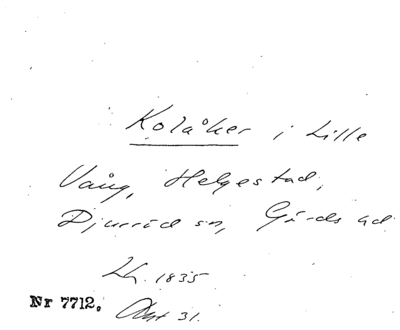 Kolåker i Lille
Vång, Helgestad,
Djurröd sn, Gärds hd
Lh. 1835
Nr 7712. Akt 31.